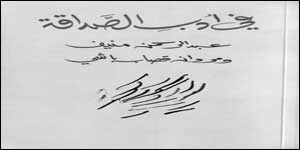 في أدب الصَّداقة
عبد الرحمن منيف
ومروان قصاب باشي